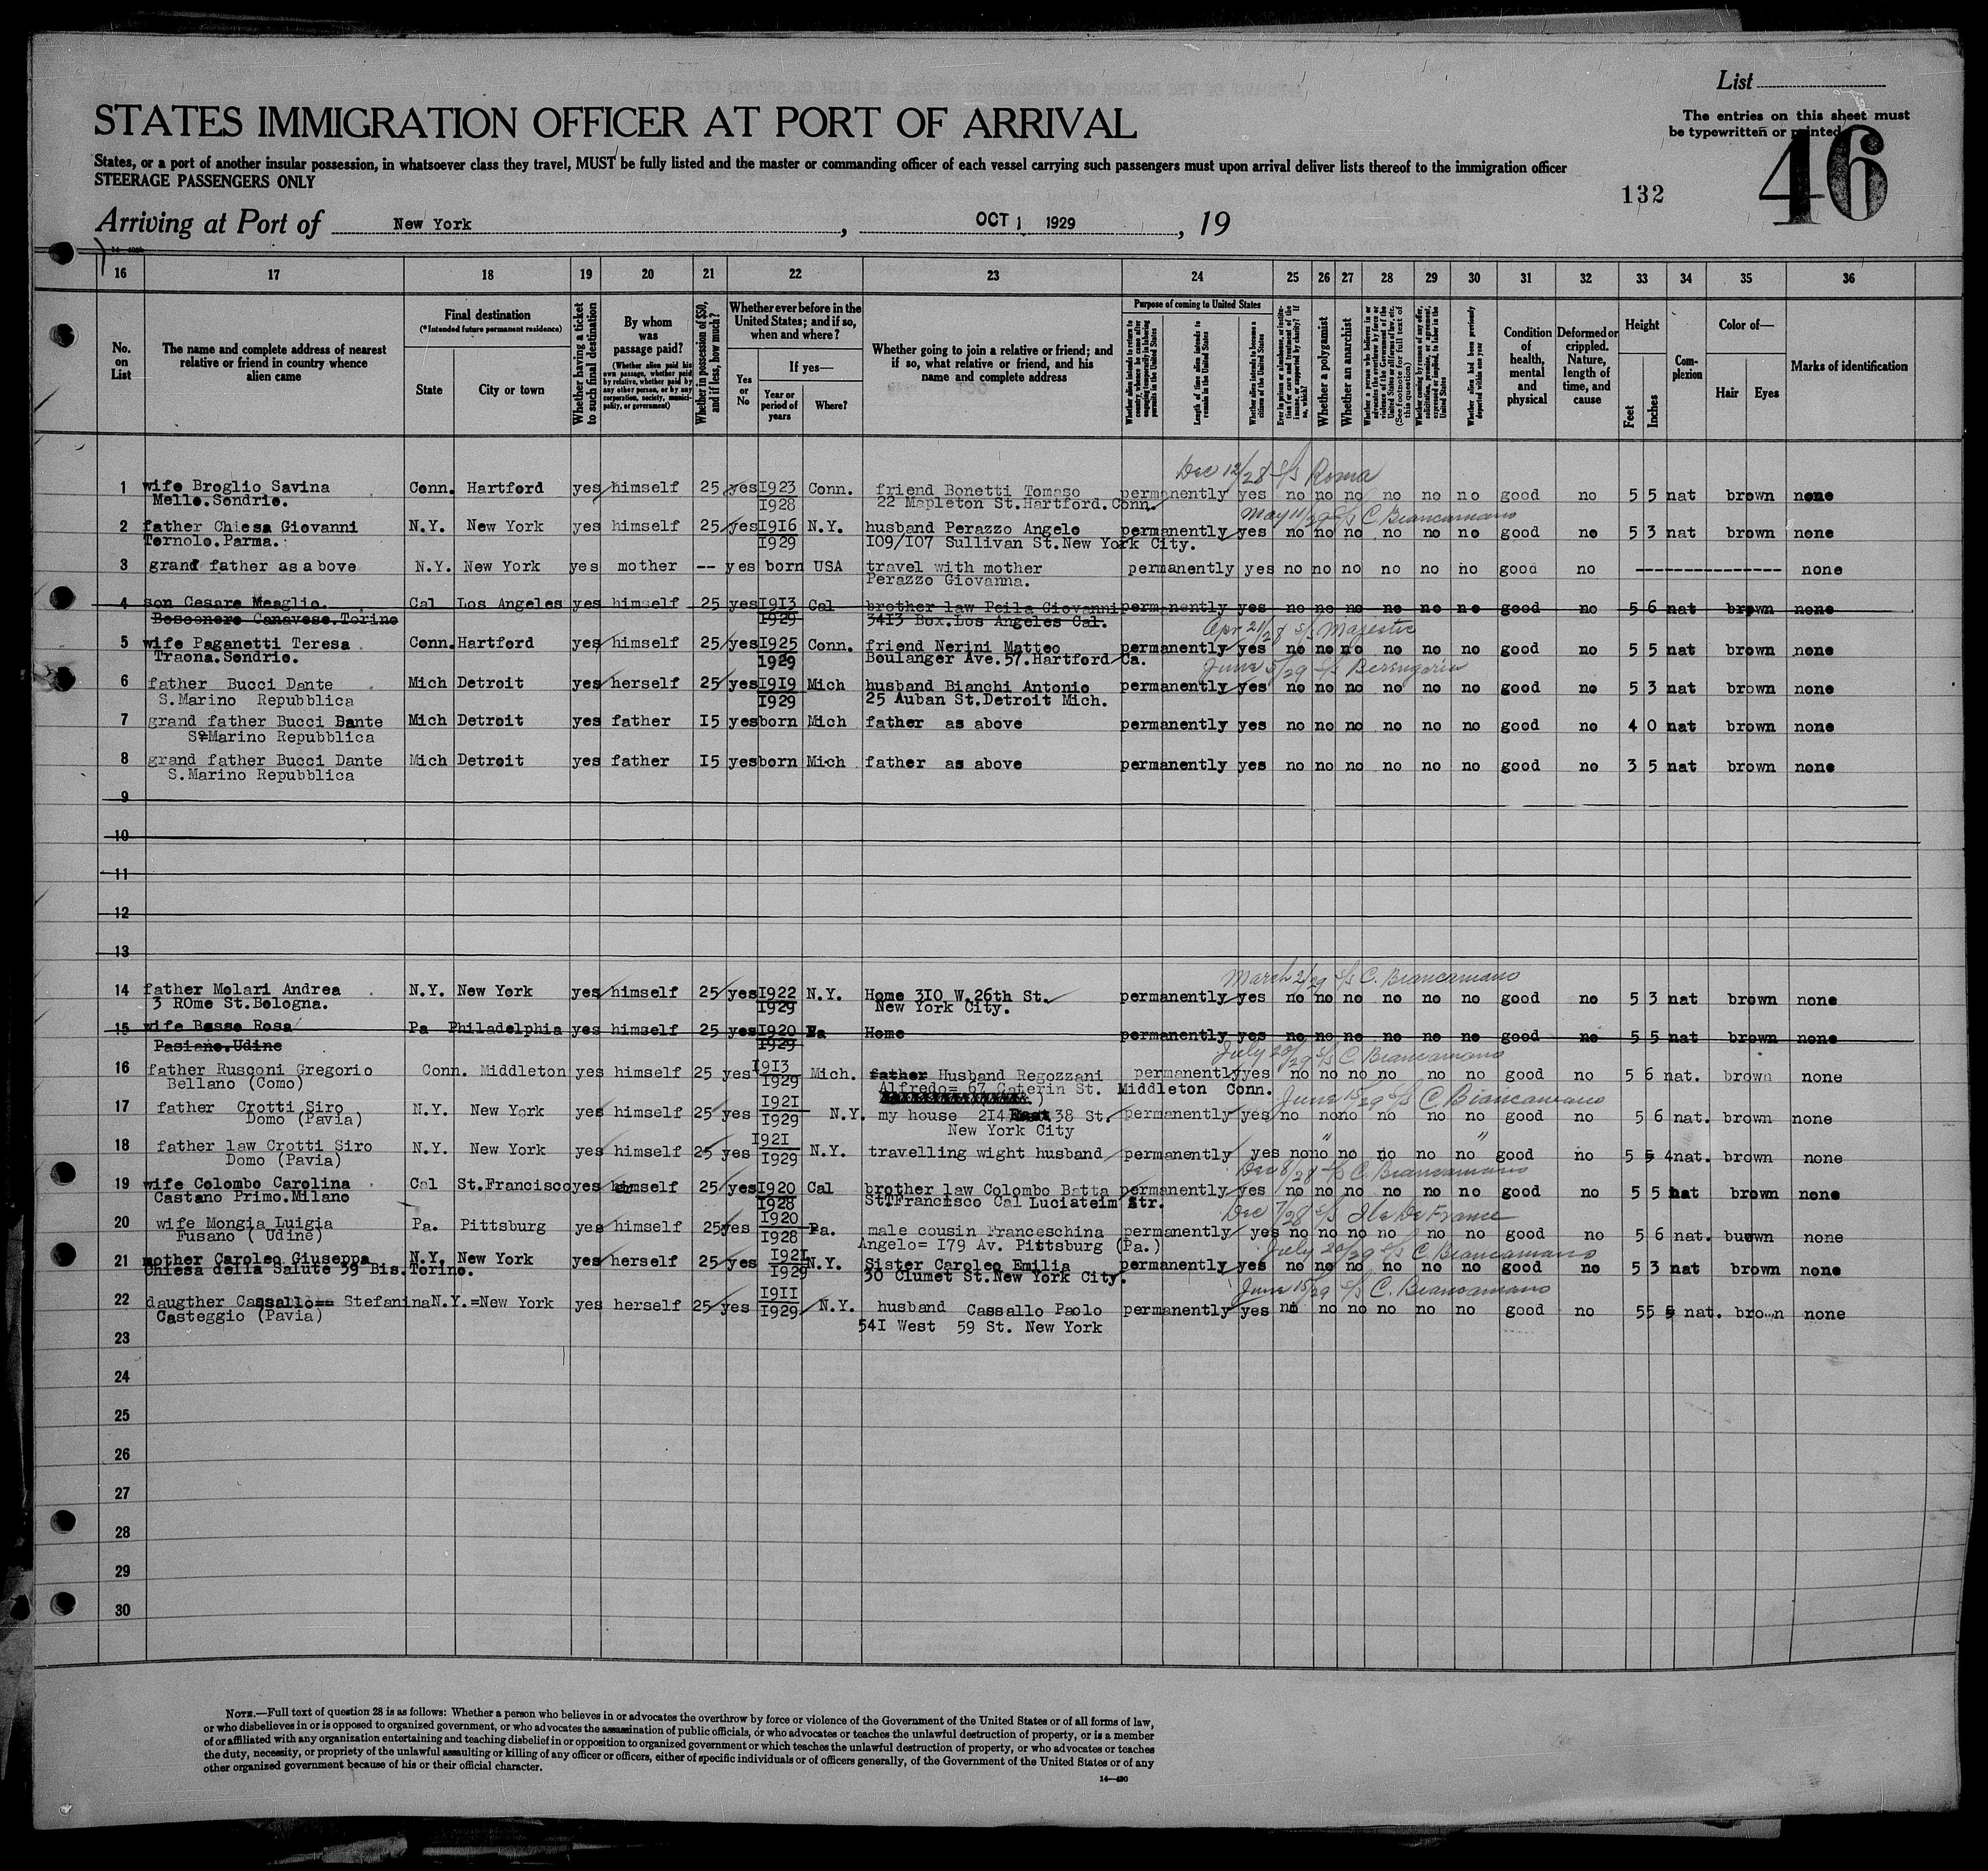 List
STATES IMMIGRATION OFFICER AT PORT OF ARRIVAL
The entries on this sheet must
be typewritten or printed
States, or a port of another insular possession, in whatsoever class they travel, MUST be fully listed and the master or commanding officer of each vessel carrying such passengers must upon arrival deliver lists thereof to the immigration officer
STEERAGE PASSENGERS ONLY
132
46
Arriving at Port of New York, OCT 1 1929, 19
16 17 18 19 20 21 22 23 24 25 26 27 28 29 30 31 32 33 34 35 36
No. on List
The name and complete address of nearest relative or friend in country whence alien came
Final destination
(*Intended future permanent residence)
State
City or town
Whether having a ticket to such final destination
By whom was passage paid?
(Whether alien paid his own passage, whether paid by relative, whether paid by any other person, or by any corporation, society, municipality, or government)
Whether in possession of $50, and if less, how much?
Whether ever before in the United States; and if so, when and where?
Yes or No
If yes—
Year or period of years
Where?
Whether going to join a relative or friend; and if so, what relative or friend, and his name and complete address
Purpose of coming to United States
Whether alien intends to return to country whence he came after engaging temporarily in laboring pursuits in the United States
Length of time alien intends to remain in the United States
Whether alien intends to become a citizen of the United States
Ever in prison or almshouse, or institution for care and treatment of the insane, or supported by charity? If so, which?
Whether a polygamist
Whether an anarchist
Whether a person who believes in or advocates the overthrow by force or violence of the Government of the United States or all forms of law, etc. (See footnote for full text of this question)
Whether coming by reason of any offer, solicitation, promise, or agreement, expressed or implied, to labor in the United States
Whether alien had been previously deported within one year
Condition of health, mental and physical
Deformed or crippled. Nature, length of time, and cause
Height
Feet
Inches
Complexion
Color of—
Hair
Eyes
Marks of identification
Dec 12/28 S/S Roma
1 wife Broglio Savina Conn. Hartford yes himself 25 yes 1923 Conn. friend Bonetti Tomaso permanently yes no no no no no no good no 5 5 nat brown none
Mello.Sondrio. 1928 22 Mapleton St.Hartford.Conn.
May 11/29 S/S C. Biancamano
2 father Chiesa Giovanni N.Y. New York yes himself 25 yes 1916 N.Y. husband Perazzo Angelo permanently yes no no no no no no good no 5 3 nat brown none
Tornolo.Parma. 1929 109/107 Sullivan St.New York City.
3 grand father as above N.Y. New York yes mother -- yes born USA travel with mother permanently yes no no no no no no good no --------------- none
Perazzo Giovanna.
4 son Cesare Meaglio. Cal Los Angeles yes himself 25 yes 1913 Cal brother law Peila Giovanni permanently yes no no no no no no good no 5 6 nat brown none
Bosconero Canavese.Torino 1929 3413 Box.Los Angeles Cal.
Apr 21/28 S/S Majestic
5 wife Paganetti Teresa Conn. Hartford yes himself 25 yes 1925 Conn. friend Nerini Matteo permanently yes no no no no no no good no 5 5 nat brown none
Traona.Sondrio. 1929 Boulanger Ave.57.Hartford Ca.
June 5/29 S/S Berengaria
6 father Bucci Dante Mich Detroit yes herself 25 yes 1919 Mich husband Bianchi Antonio permanently yes no no no no no no good no 5 3 nat brown none
S.Marino Repubblica 1929 25 Auban St.Detroit Mich.
7 grand father Bucci Dante Mich Detroit yes father 15 yes born Mich father as above permanently yes no no no no no no good no 4 0 nat brown none
S.Marino Repubblica
8 grand father Bucci Dante Mich Detroit yes father 15 yes born Mich father as above permanently yes no no no no no no good no 3 5 nat brown none
S.Marino Repubblica
9
10
11
12
13
March 2/29 S/S C. Biancamano
14 father Molari Andrea N.Y. New York yes himself 25 yes 1922 N.Y. Home 310 W.26th St. permanently yes no no no no no no good no 5 3 nat brown none
3 ROme St.Bologna. 1929 New York City.
15 wife Basse Rosa Pa Philadelphia yes himself 25 yes 1920 Pa Home permanently yes no no no no no no good no 5 5 nat brown none
Pasiano.Udine 1929
July 20/29 S/S C. Biancamano
16 father Rusconi Gregorio Conn. Middleton yes himself 25 yes 1913 Mich. father Husband Regozzani permanently yes no no no no no no good no 5 6 nat. brown none
Bellano (Como) 1929 Alfredo= 67 Caterin St. Middleton Conn.
June 15/29 S/S C. Biancamano
17 father Crotti Siro N.Y. New York yes himself 25 yes 1921 N.Y. my house 214 38 St. permanently yes no no no no no no good no 5 6 nat. brown none
Domo (Pavia) 1929 New York City
" "
18 father law Crotti Siro N.Y. New York yes himself 25 yes 1921 N.Y. travelling wight husband permanently yes no no no no no no good no 5 5 4 nat. brown none
Domo (Pavia) 1929
Dec 8/28 S/S C. Biancamano
19 wife Colombo Carolina Cal St.Francisco yes himself 25 yes 1920 Cal brother law Colombo Batta permanently yes no no no no no no good no 5 5 nat brown none
Castano Primo.Milano 1928 St.Francisco Cal Luciateim Str.
Dec 7/28 S/S Ile De France
20 wife Mongia Luigia Pa. Pittsburg yes himself 25 yes 1920 Pa. male cousin Franceschina permanently yes no no no no no no good no 5 6 nat. buown none
Fusano ( Udine) 1928 Angelo= 179 Av. Pittsburg (Pa.)
July 20/29 S/S C Biancamano
21 mother Caroleo Giuseppa N.Y. New York yes herself 25 yes 1921 N.Y. Sister Caroleo Emilia permanently yes no no no no no no good no 5 3 nat brown none
Chiesa della Salute 39 Bis.Torino. 1929 30 Clumet St.New York City.
June 15/29 S/S C. Biancamano
22 daugther Cassallo== Stefanina N.Y.=New York yes herself 25 yes 1911 N.Y. husband Cassallo Paolo permanently yes no no no no no no good no 55 5 nat. brown none
Casteggio (Pavia) 1929 541 West 59 St. New York
23
24
25
26
27
28
29
30
NOTE.—Full text of question 28 is as follows: Whether a person who believes in or advocates the overthrow by force or violence of the Government of the United States or of all forms of law,
or who disbelieves in or is opposed to organized government, or who advocates the assassination of public officials, or who advocates or teaches the unlawful destruction of property, or is a member
of or affiliated with any organization entertaining and teaching disbelief in or opposition to organized government or which teaches the unlawful destruction of property, or who advocates or teaches
the duty, necessity, or propriety of the unlawful assaulting or killing of any officer or officers, either of specific individuals or of officers generally, of the Government of the United States or of any
other organized government because of his or their official character.
14—430